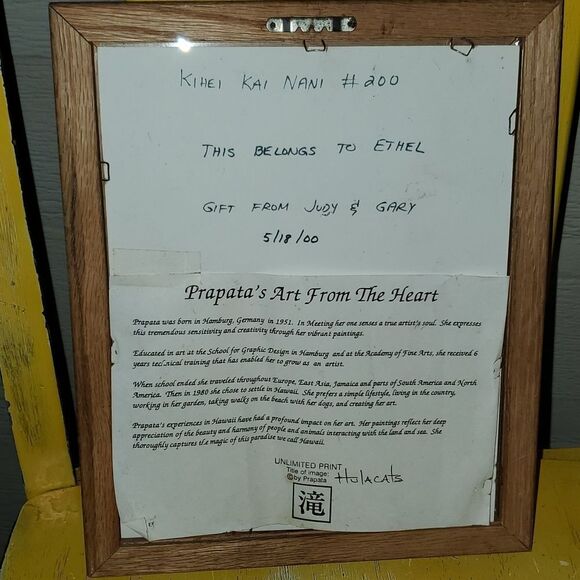 KIHEI KAI NANI #200
THIS BELONGS TO ETHEL
GIFT FROM JUDY & GARY
5/18/00
Prapata's Art From The Heart
Prapata was born in Hamburg, Germany in 1951. In Meeting her one senses a true artist's soul. She expresses
this tremendous sensitivity and creativity through her vibrant paintings.
Educated in art at the School for Graphic Design in Hamburg and at the Academy of Fine Arts, she received 6
years technical training that has enabled her to grow as an artist.
When school ended she traveled throughout Europe, East Asia, Jamaica and parts of South America and North
America. Then in 1980 she chose to settle in Hawaii. She prefers a simple lifestyle, living in the country,
working in her garden, taking walks on the beach with her dogs, and creating her art.
Prapata's experiences in Hawaii have had a profound impact on her art. Her paintings reflect her deep
appreciation of the beauty and harmony of people and animals interacting with the land and sea. She
thoroughly captures the magic of this paradise we call Hawaii.
UNLIMITED PRINT
Title of image:
©by Prapata HulaCats
滝